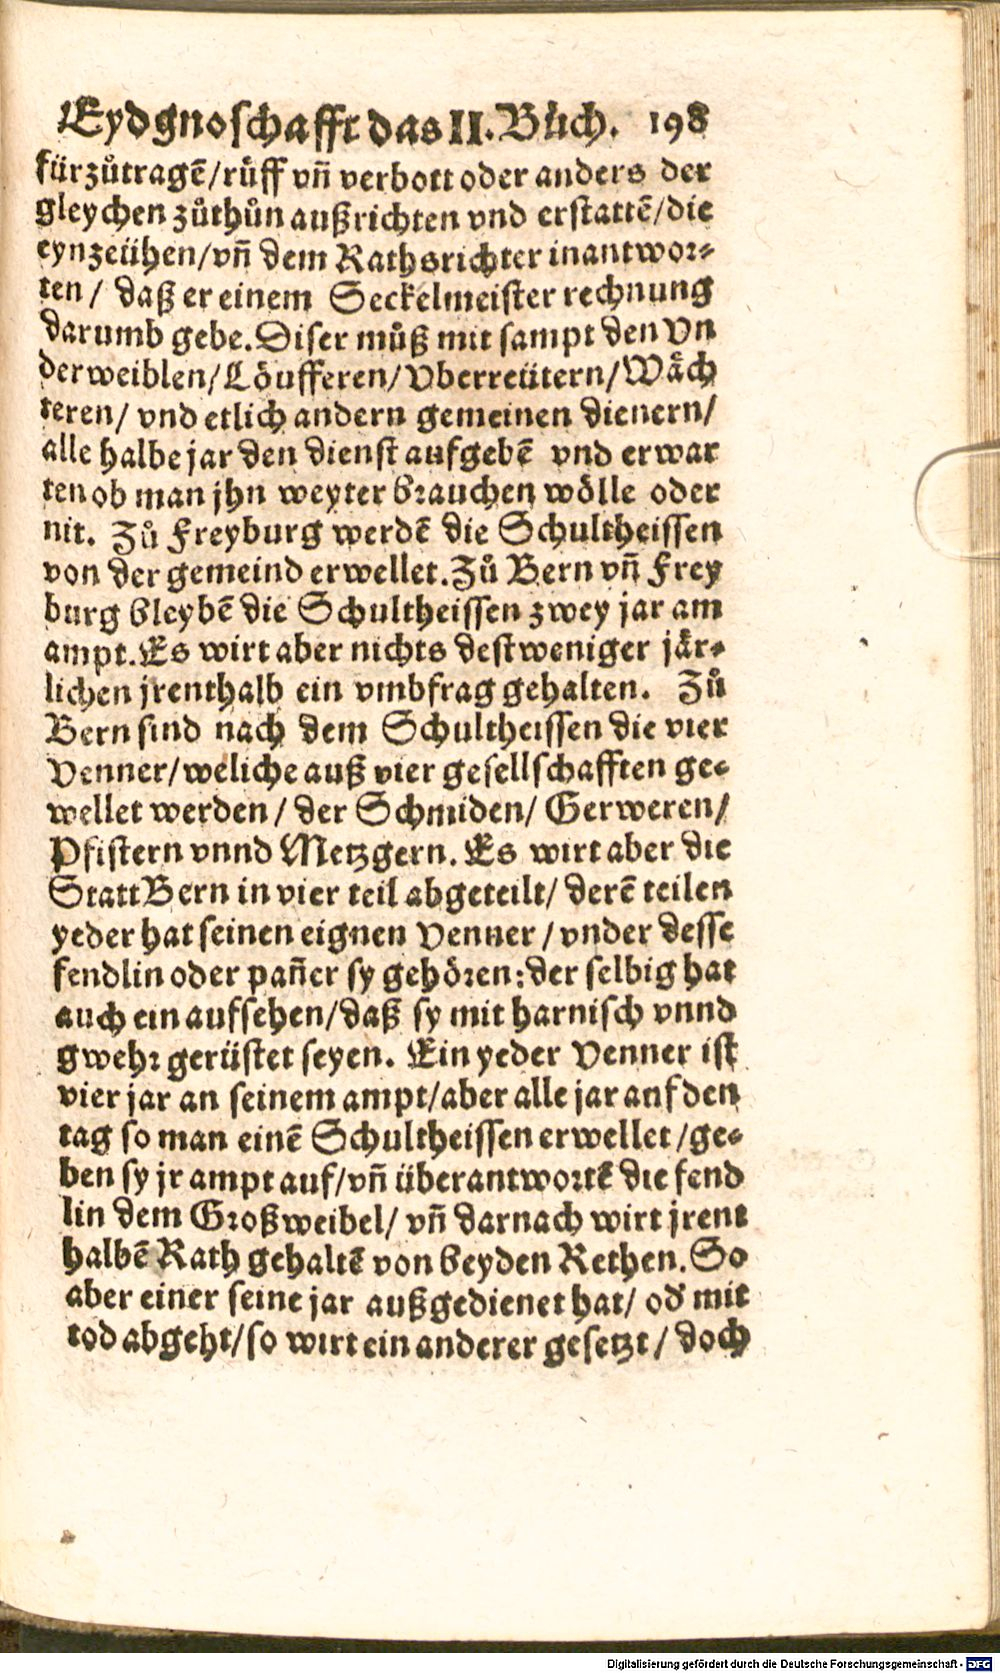 Eydgnoschafft das II. Bůch. 198
fürzůtragē/rüff vn̄ verbott oder anders der
gleychen zůthůn außrichten vnd erstattē/die
eynzeühen/vn̄ dem Rathsrichter inantwor⸗
ten / daß er einem Seckelmeister rechnung
darumb gebe. Diser můß mit sampt den Vn
derweiblen/Löufferen/Vberreütern/Wäch
teren/ vnd etlich andern gemeinen dienern/
alle halbe jar den dienst aufgebē vnd erwar
ten ob man jhn weyter brauchen wölle oder
nit. Zů Freyburg werdē die Schultheissen
von der gemeind erwellet. Zů Bern vn̄ Frey
burg bleybē die Schultheissen zwey jar am
ampt. Es wirt aber nichts destweniger jär⸗
lichen jrenthalb ein vmbfrag gehalten. Zů
Bern sind nach dem Schultheissen die vier
Venner/weliche auß vier gesellschafften ge⸗
wellet werden / der Schmiden/ Gerweren/
Pfistern vnnd Metzgern. Es wirt aber die
Statt Bern in vier teil abgeteilt/ derē teilen
yeder hat seinen eignen Venner / vnder desse
fendlin oder pan̄er sy gehören: der selbig hat
auch ein aufsehen/daß sy mit harnisch vnnd
gwehr gerüstet seyen. Ein yeder Venner ist
vier jar an seinem ampt/aber alle jar auf den
tag so man einē Schultheissen erwellet /ge⸗
ben sy jr ampt auf/vn̄ überantwortē die fend
lin dem Großweibel/ vn̄ darnach wirt jrent
halbē Rath gehaltē von beyden Rethen. So
aber einer seine jar außgedienet hat/ od' mit
tod abgeht/so wirt ein anderer gesetzt / doch
Digitalisierung gefördert durch die Deutsche Forschungsgemeinschaft - DFG